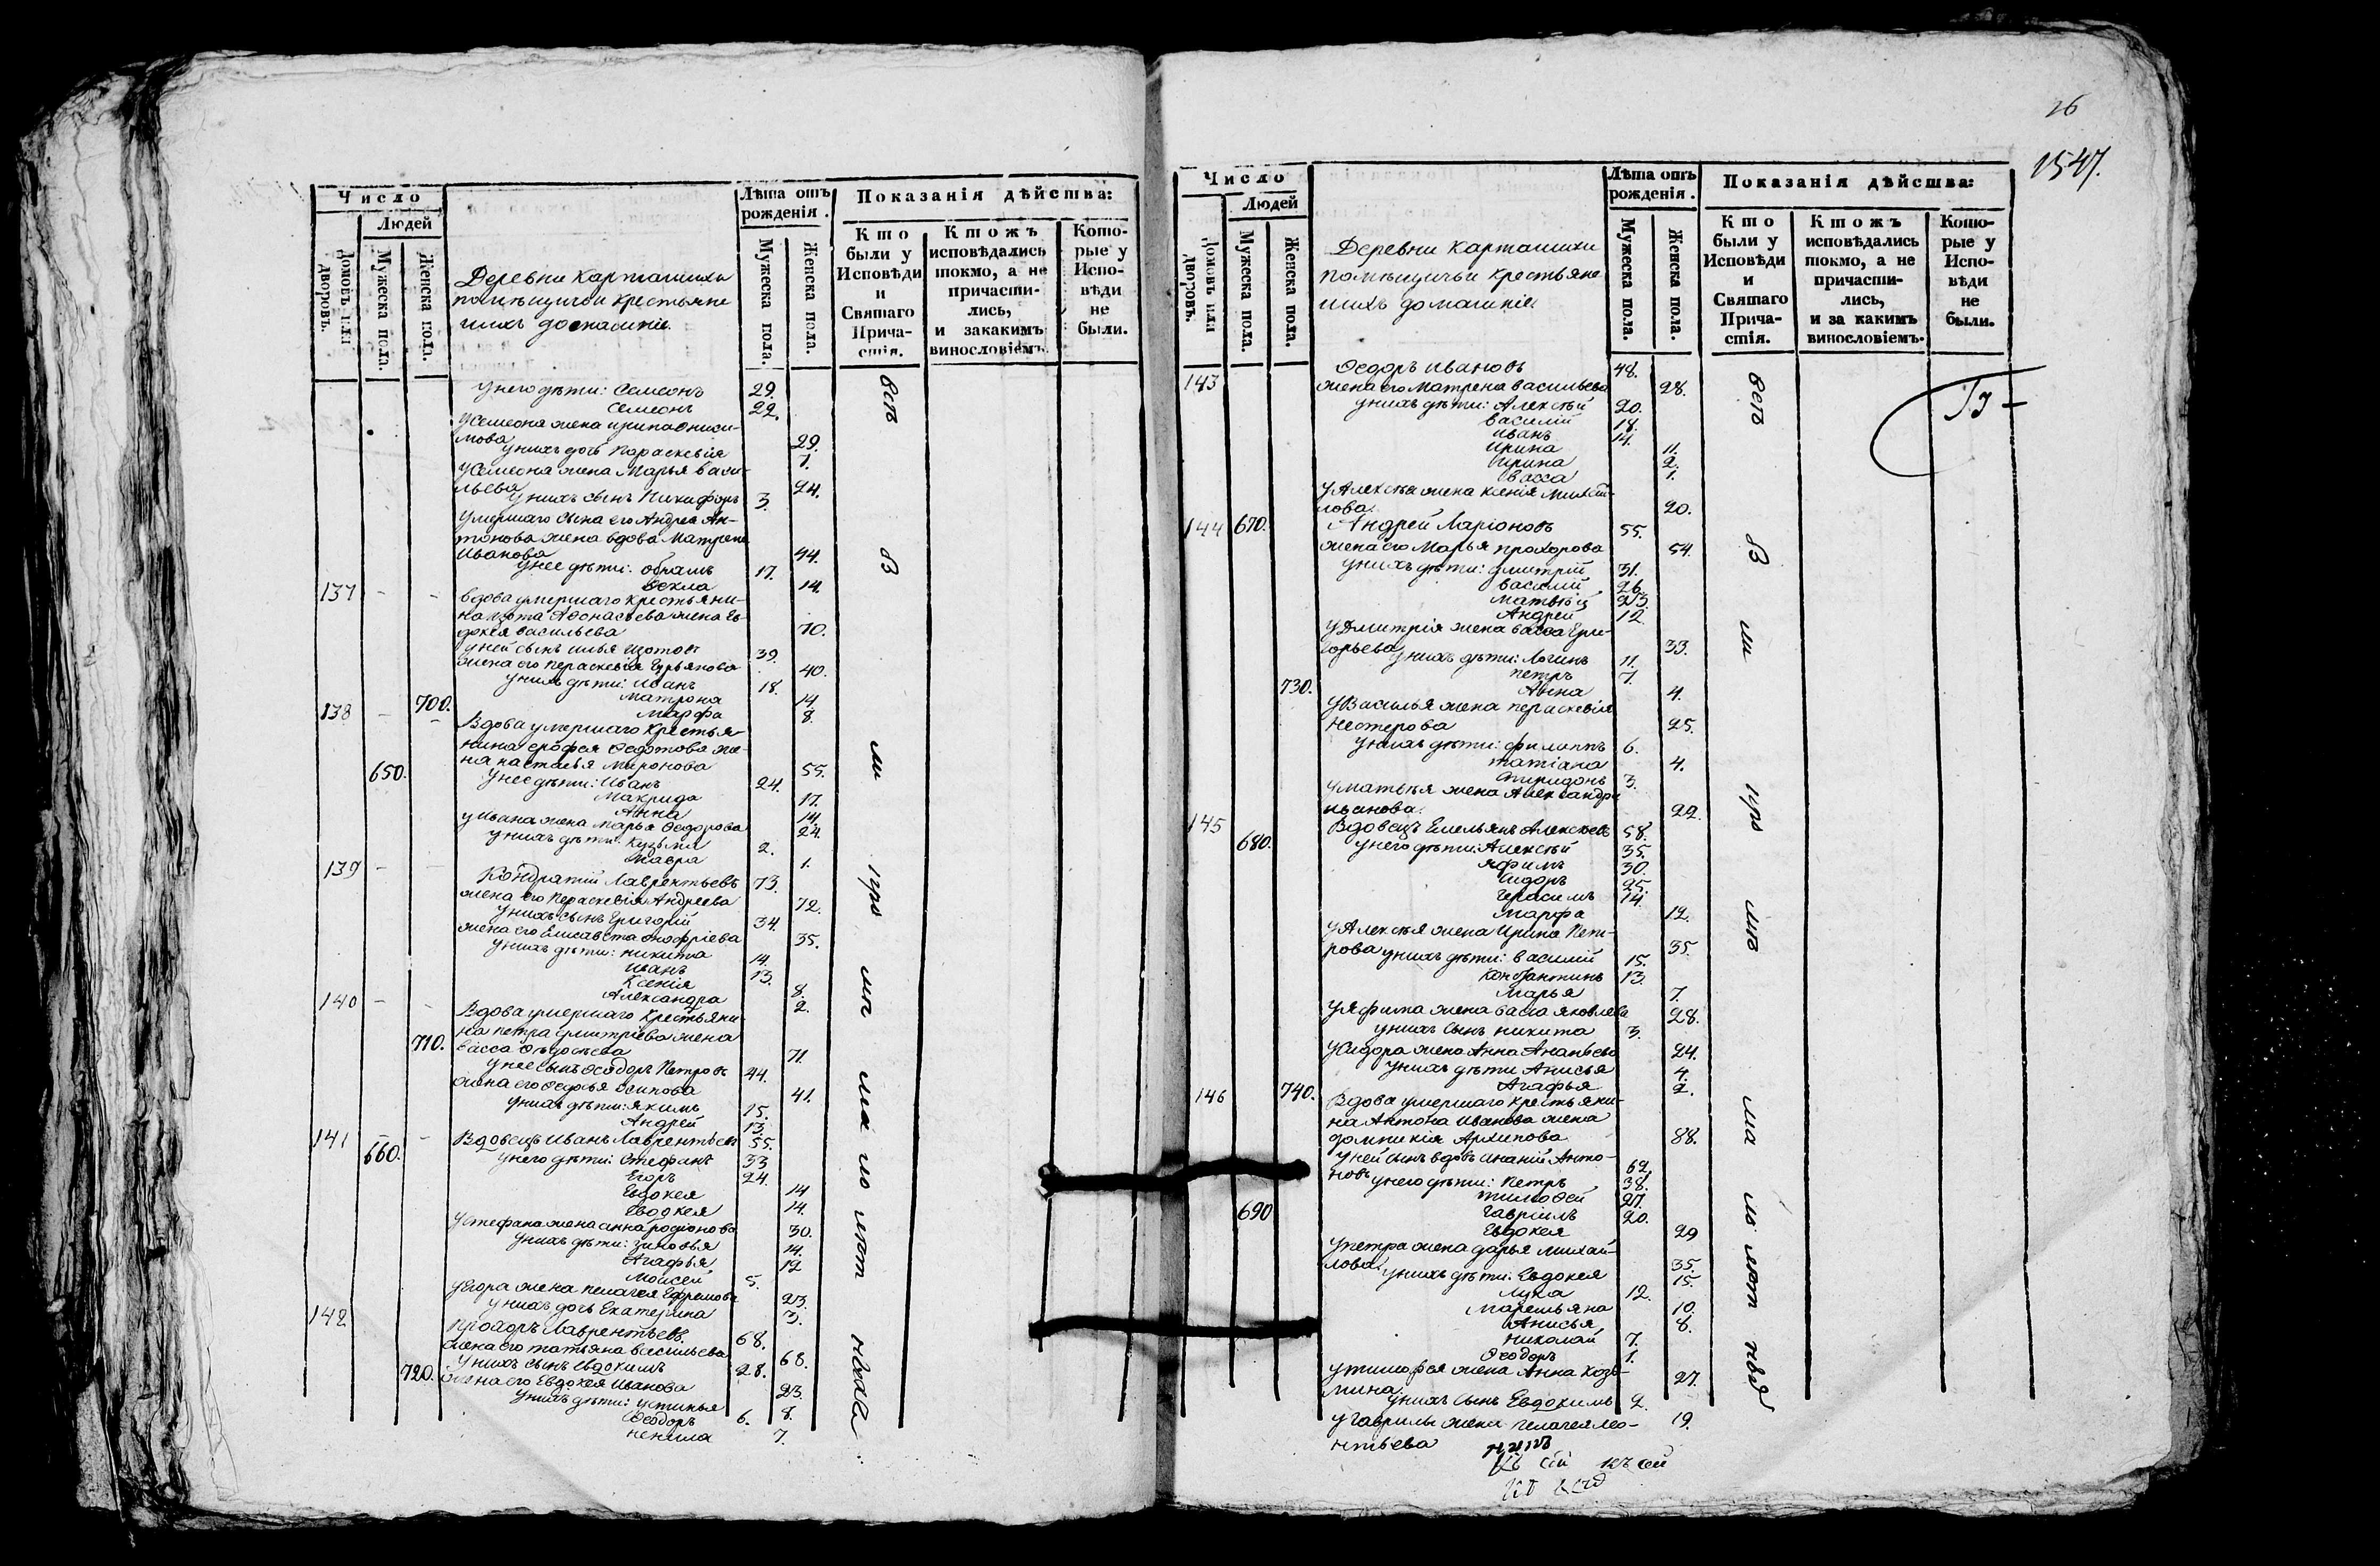 Число
Людей
Домовъ или дворовъ.
Мужеска пола.
Женска пола.
Деревни Карташихи
помѣщичьи крестьяне
ихъ домашніе
Лѣта отъ рожденія.
Мужеска пола.
Женска пола.
Показанія дѣйства:
Кто были у Исповѣди и Святаго Причастія.
Ктожъ исповѣдались токмо, а не причастились, и закакимъ винословіемъ.
Которые у Исповѣди не были.
у него дѣти: Семеонъ 29.
Семеонъ 22.
У Семеона жена
29.
у нихъ дочь Параскевія 7.
У Семеона жена Марья Васи-
льева 24.
у нихъ сынъ Никифоръ 3.
Умершаго сына его Андрея Ан-
тонова жена вдова Матрена
Иванова 44.
у нее дѣти: 17.
Ѳекла 14.
137 Вдова умершаго крестьяни-
на Аѳонасьева жена Ев-
докея Васильева 70.
у ней сынъ Илья 39.
жена его Пераскевія Гурьянова 40.
у нихъ дѣти: Иванъ 18.
700. Матрона 14
Марфа 8.
138 Вдова умершаго крестья-
нина Ерофея Ѳедотова же-
на Настасья Миронова 55.
650. у нее дѣти: Иванъ 24.
Макрида 17.
Анна 14.
у Ивана жена Марья Ѳедорова 24.
у нихъ дѣти: Кузьма 2.
Мавра 1.
139 Кондратій Лаврентьевъ 73.
жена его Пераскевія Андреева 72.
у нихъ сынъ Григорій 34.
жена его Елисавета Онофріева 35.
у нихъ дѣти: Никита 14.
Иванъ 13.
Ксенія 8.
Александра 2.
140 Вдова умершаго крестьяни-
на Петра Дмитріева жена
710. Васса 71.
у нее сынъ Ѳеодоръ Петровъ 44.
жена его Ѳедосья Осипова 41.
у нихъ дѣти: Якимъ 15.
Андрей 13.
141 Вдовецъ Иванъ Лаврентьевъ 55.
660. у него дѣти: Стефанъ 33
Егоръ 24.
Евдокея 14
Евдокея 14.
у Стефана жена Анна Родіонова 30.
у нихъ дѣти: Зиновья 14.
Агафья 12
Моисей 5.
у Егора жена Пелагея Ефремова 23.
у нихъ дочь Екатерина 3.
142 Прохоръ Лаврентьевъ. 68.
жена его Татьяна Васильева 68.
у нихъ сынъ Евдокимъ 28.
720. жена его Евдокея Иванова 23.
у нихъ дѣти: Устинья 8.
Ѳеодоръ 6.
Ненила 7.
26
1547.
Число
Людей
Домовъ или дворовъ.
Мужеска пола.
Женска пола.
Деревни Карташихи
помѣщичьи крестьяне
ихъ домашніе
Лѣта отъ рожденія.
Мужеска пола.
Женска пола.
Показанія дѣйства:
Кто были у Исповѣди и Святаго Причастія.
Ктожъ исповѣдались токмо, а не причастились, и за какимъ винословіемъ.
Которые у Исповѣди не были.
143 Ѳеодоръ Ивановъ 48.
жена его Матрена Васильева 28.
у нихъ дѣти: Алексѣй 20.
Василій 18.
Иванъ 14.
Ирина 11.
Ирина 2.
Васса 1.
у Алексѣя жена Ксенія Михай-
лова. 20.
144 670. Андрей Ларіоновъ 55.
жена его Марья Прохорова 54.
у нихъ дѣти: Дмитрій 31.
Василій 26.
Матвѣй 23.
Андрей 12.
у Дмитрія жена Васса Гри-
горьева 33.
у нихъ дѣти: Логинъ 11.
Петръ 7.
730. Анна 4.
у Василья жена Пераскевія
Нестерова 25.
у нихъ дѣти: Филиппъ 6.
Татіана 4.
Спиридонъ 3.
у Матвѣя жена Александра
Иванова. 22.
145 Вдовецъ Емельянъ Алексѣевъ 58.
680. у него дѣти: Алексѣй 35.
Яфимъ 30.
Сидоръ 25.
Герасимъ 14.
Марфа 12.
у Алексѣя жена Ирина Пет-
рова 35
у нихъ дѣти: Василій 15.
Константинъ 13.
Марья 7.
у Яфима жена Васса Яковлева 28.
у нихъ сынъ Никита 3.
у Сидора жена Анна Ананьева 24.
у нихъ дѣти Анисья 4.
Агафья 2.
146 740. Вдова умершаго крестьяни-
на Антона Иванова жена
Домникія Архипова 88.
у ней сынъ вдовъ Ананій Анто-
новъ 62.
у него дѣти: Петръ 38.
Тимоѳей 27.
690 Гавріилъ 20.
Евдокея 29
у Петра жена Дарья Михай-
лова 35.
у нихъ дѣти: Евдокея 15.
Лука 12.
Маремьяна 10.
Анисья 8.
Николай 7.
Ѳеодоръ 1.
у Тимоѳея жена Анна Козь-
мина 27.
у нихъ сынъ Евдокимъ 2.
у Гаврилы жена Пелагея Лео-
нтьева 19.